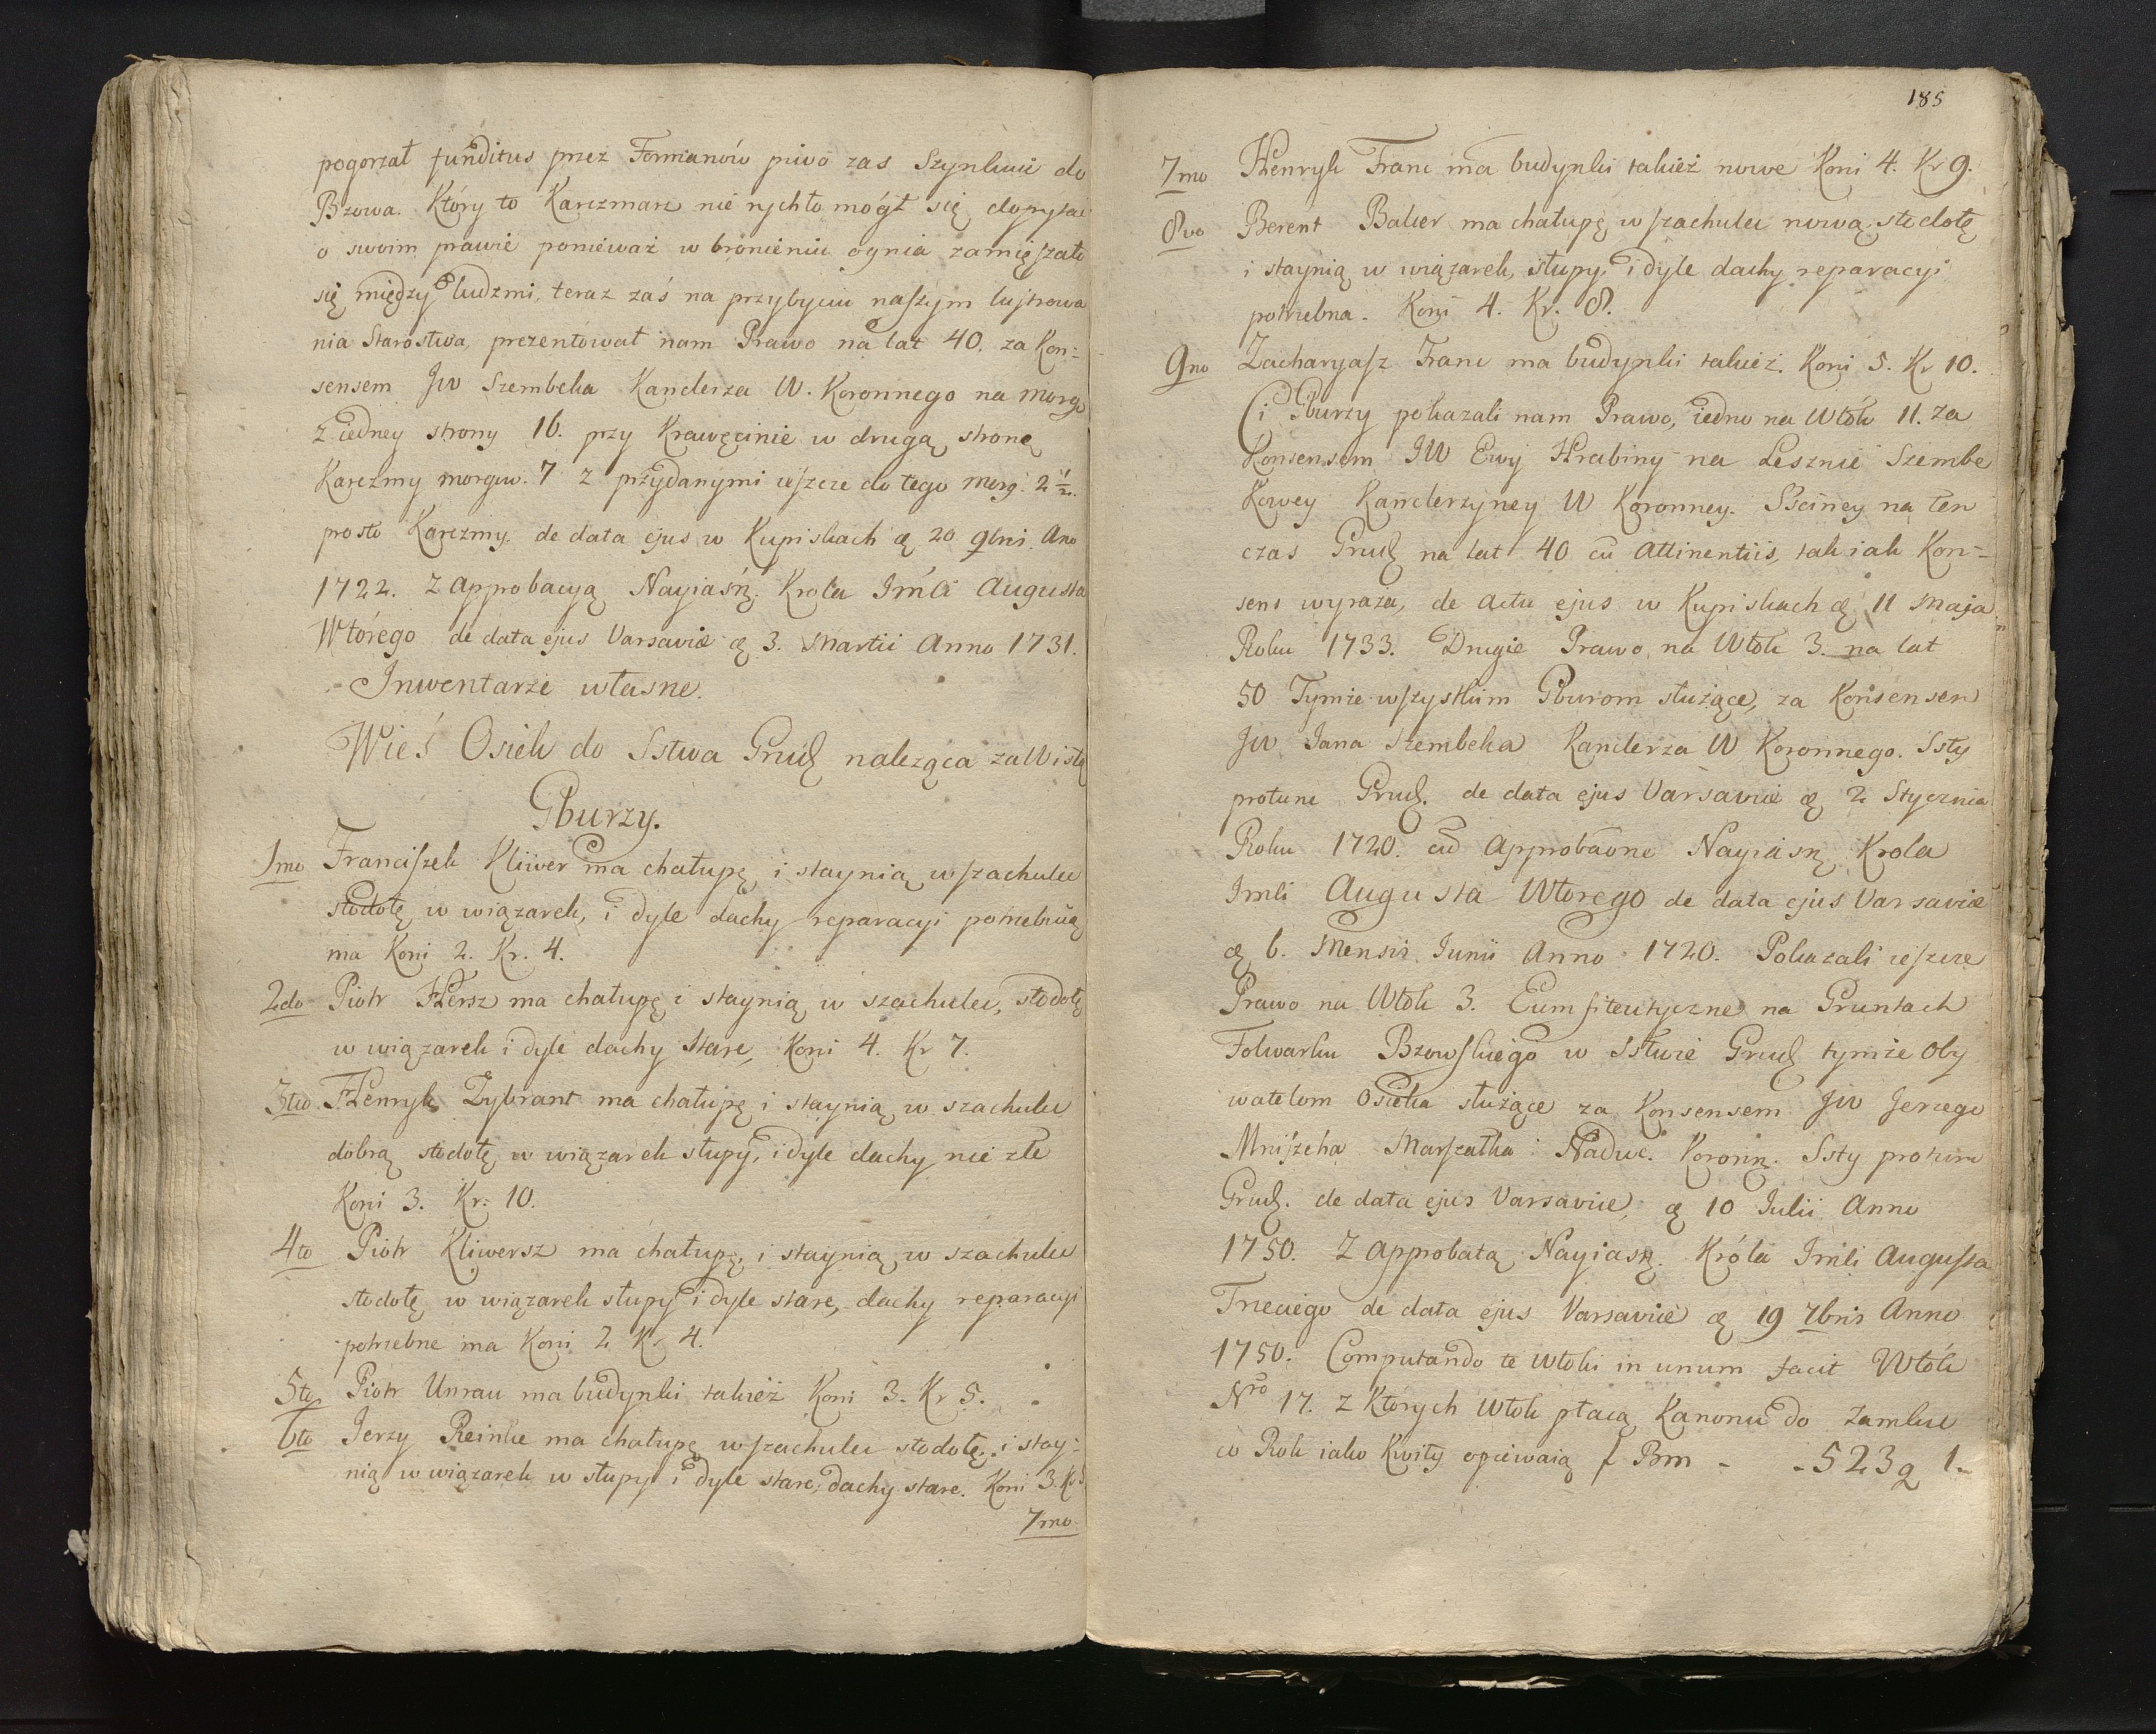 pogorzał funditus przez Formanów piwo zas Szynkuie do
Bzowa. Który to Karczmarz nie rychło mógł się dopytać
o swoim prawie ponieważ w bronieniu ognia zamięszało
się między ludzmi, teraz zaś na przybyciu naszym lustrowa
nia Starostwa, prezentował nam Prawo na lat 40. za Kon-
sensem JW Szembeka Kanclerza W. Koronnego na morgi
z iedney strony 16. przy Krawęcinie w drugą stronę
Karczmy morgow. 7 z przydanymi ieszcze do tego morg. 2 1/2.
prosto Karczmy. de data ejus w Kupiskach d 20 9bris. Ano
1722. z approbacyą Nayiaśń. Krola Imci Augusta
Wtórego de data ejus Varsaviæ d 3. Martii Anno 1731.
Inwentarze własne.
Wieś Osiek do Sstwa Grud należąca za Wisłą
Gburzy.
1mo Franciszek Kliwer ma chałupę i staynią w szachulcu
stodołę w wiązarek, i dyle dachy reparacyi potrzebuią
ma Koni 2. Kr. 4.
2do Piotr Hersz ma chałupę i staynią w szachulcu, stodołę
w wiązarek i dyle dachy stare, Koni 4. Kr 7.
3tio Henryk Zybrant ma chałupę i staynią w szachulcu
dobrą stodołę w wiązarek słupy, i dyle dachy nie złe
Koni 3. Kr. 10.
4to Piotr Kliwersz ma chałupę, i staynią w szachulcu
stodołę w wiązarek słupy i dyle stare, dachy reparacyi
potrzebne ma Koni 2 Kr 4.
5to Piotr Unrau ma budynki takież Koni 3. Kr 5.
6to Jerzy Reinke ma chałupę w szachulcu stodołę i stay-
nią w wiązarek w słupy i dyle stare, dachy stare. Koni 3. Kr 5
7mo
185
7mo Henryk Franc ma budynki takież nowe Koni 4. Kr 9.
8vo Berent Balcer ma chałupę w szachulcu nową, stodołę
i staynią w wiązarek, słupy, i dyle dachy reparacyi
potrzebna. Koni 4. Kr. 8.
9no Zacharyasz Franc ma budynki takież. Koni 5. Kr 10.
Ci Gburzy pokazali nam Prawo, iedno na Włók 11. za
Konsensem JW Ewy Hrabiny na Lesznie Szembe
kowey Kanclerzyney W Koronney. Sściney na ten
czas Grud na lat 40 cu attinentiis, tak iak Kon-
sens wyraża, de actu ejus w Kupiskach d 11 Maja
Roku 1733. Drugie Prawo na Włok 3. na lat
50 Tymże wszystkim Gburom służące, za Konsensem
JW Jana Szembeka Kanclerza W Koronnego. Ssty
protunc Grud. de data ejus Varsaviæ d 2 Stycznia
Roku 1720. cu Approbaōne Nayiaśń Krola
Imci Augusta Wtorego de data ejus Varsaviæ
d 6. Mensis Junii Anno 1720. Pokazali ieszcze
Prawo na Włok 3. Eumfiteutyczne na Gruntach
Folwarku Bzowskiego w Sstwie Grud tymże Oby
watelom Osieka służące za Konsensem JW Jerzego
Mniszcha Marszałka Nadwr. Koronn. Ssty protunc
Grud. de data ejus Varsaviæ, d 10 Julii Anno
1750. z approbatą Nayiaśń. Króla Imci Augusta
Trzeciego de data ejus Varsaviæ d 19 7bris Anno
1750. Computando te włoki in unum facit Włók
Nro 17. z Których Włok płacą Kanonu do Zamku
co Rok iako Kwity opiewaią f Bm - - 523 g 1.-